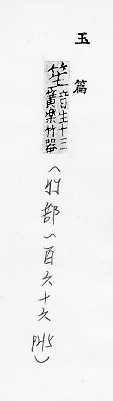 玉篇
笙音生十三簧楽竹器
(竹部一百六十六 )